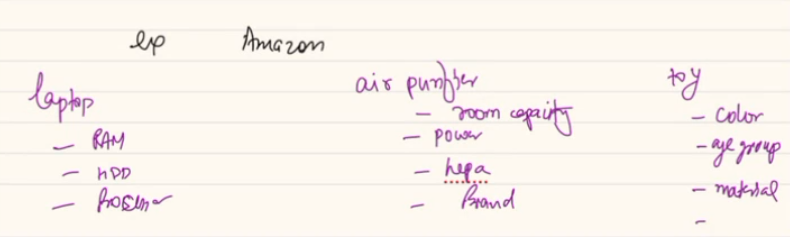 exp Amazon
laptop
- RAM
- HDD
- Processor
air purifier
- room capacity
- power
- hepa
- Brand
toy
- color
- age group
- material
-